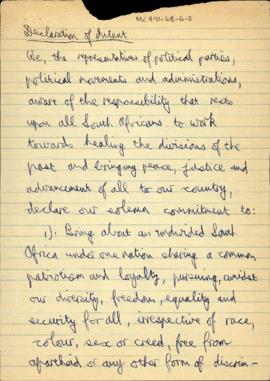 MCH91-68-6-2
Declaration of Intent
We, the representatives of political parties,
political movements and administrations,
aware of the responsibility that rests
upon all South Africans to work
towards healing the divisions of the
past and bringing peace, justice and
advancement of all to our country,
declare our solemn commitment to:
1). Bring about an undivided South
Africa under one nation sharing a common
patriotism and loyalty, pursuing, amidst
our diversity, freedom, equality and
security for all, irrespective of race,
colour, sex or creed, free from
apartheid or any other form of discrim-